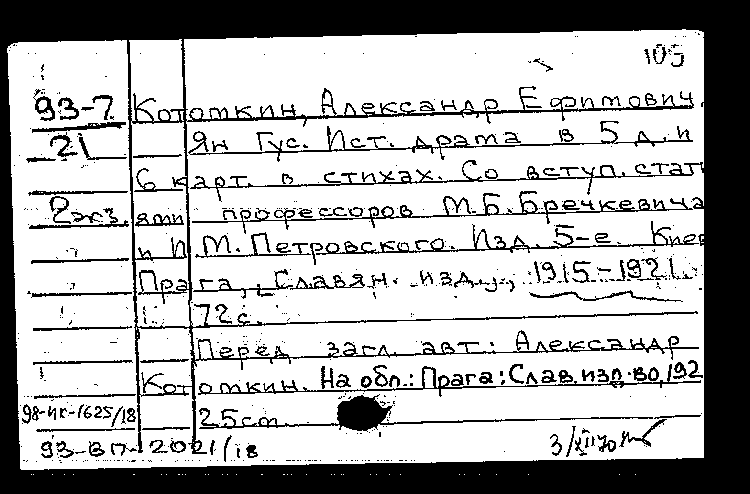 105
93-7 Кототкин, Александр Ефимович.
21 Ян Гус. Ист. драма в 5 д. и
6 карт. в стихах. Со вступ. стать
2 экз. ями профессоров М.Б. Бречкевича
и П.М. Петровского. Изд. 5-е. Киев
Прага, "Славян. изд.", 1915-1921.
72 с.
Перед загл. авт.: Александр
Кототкин. На обл.: Прага: Слав. изд-во, 192
98-ИК-1625/18 25 cm.
93-ВП-2021/18 3/XII 70